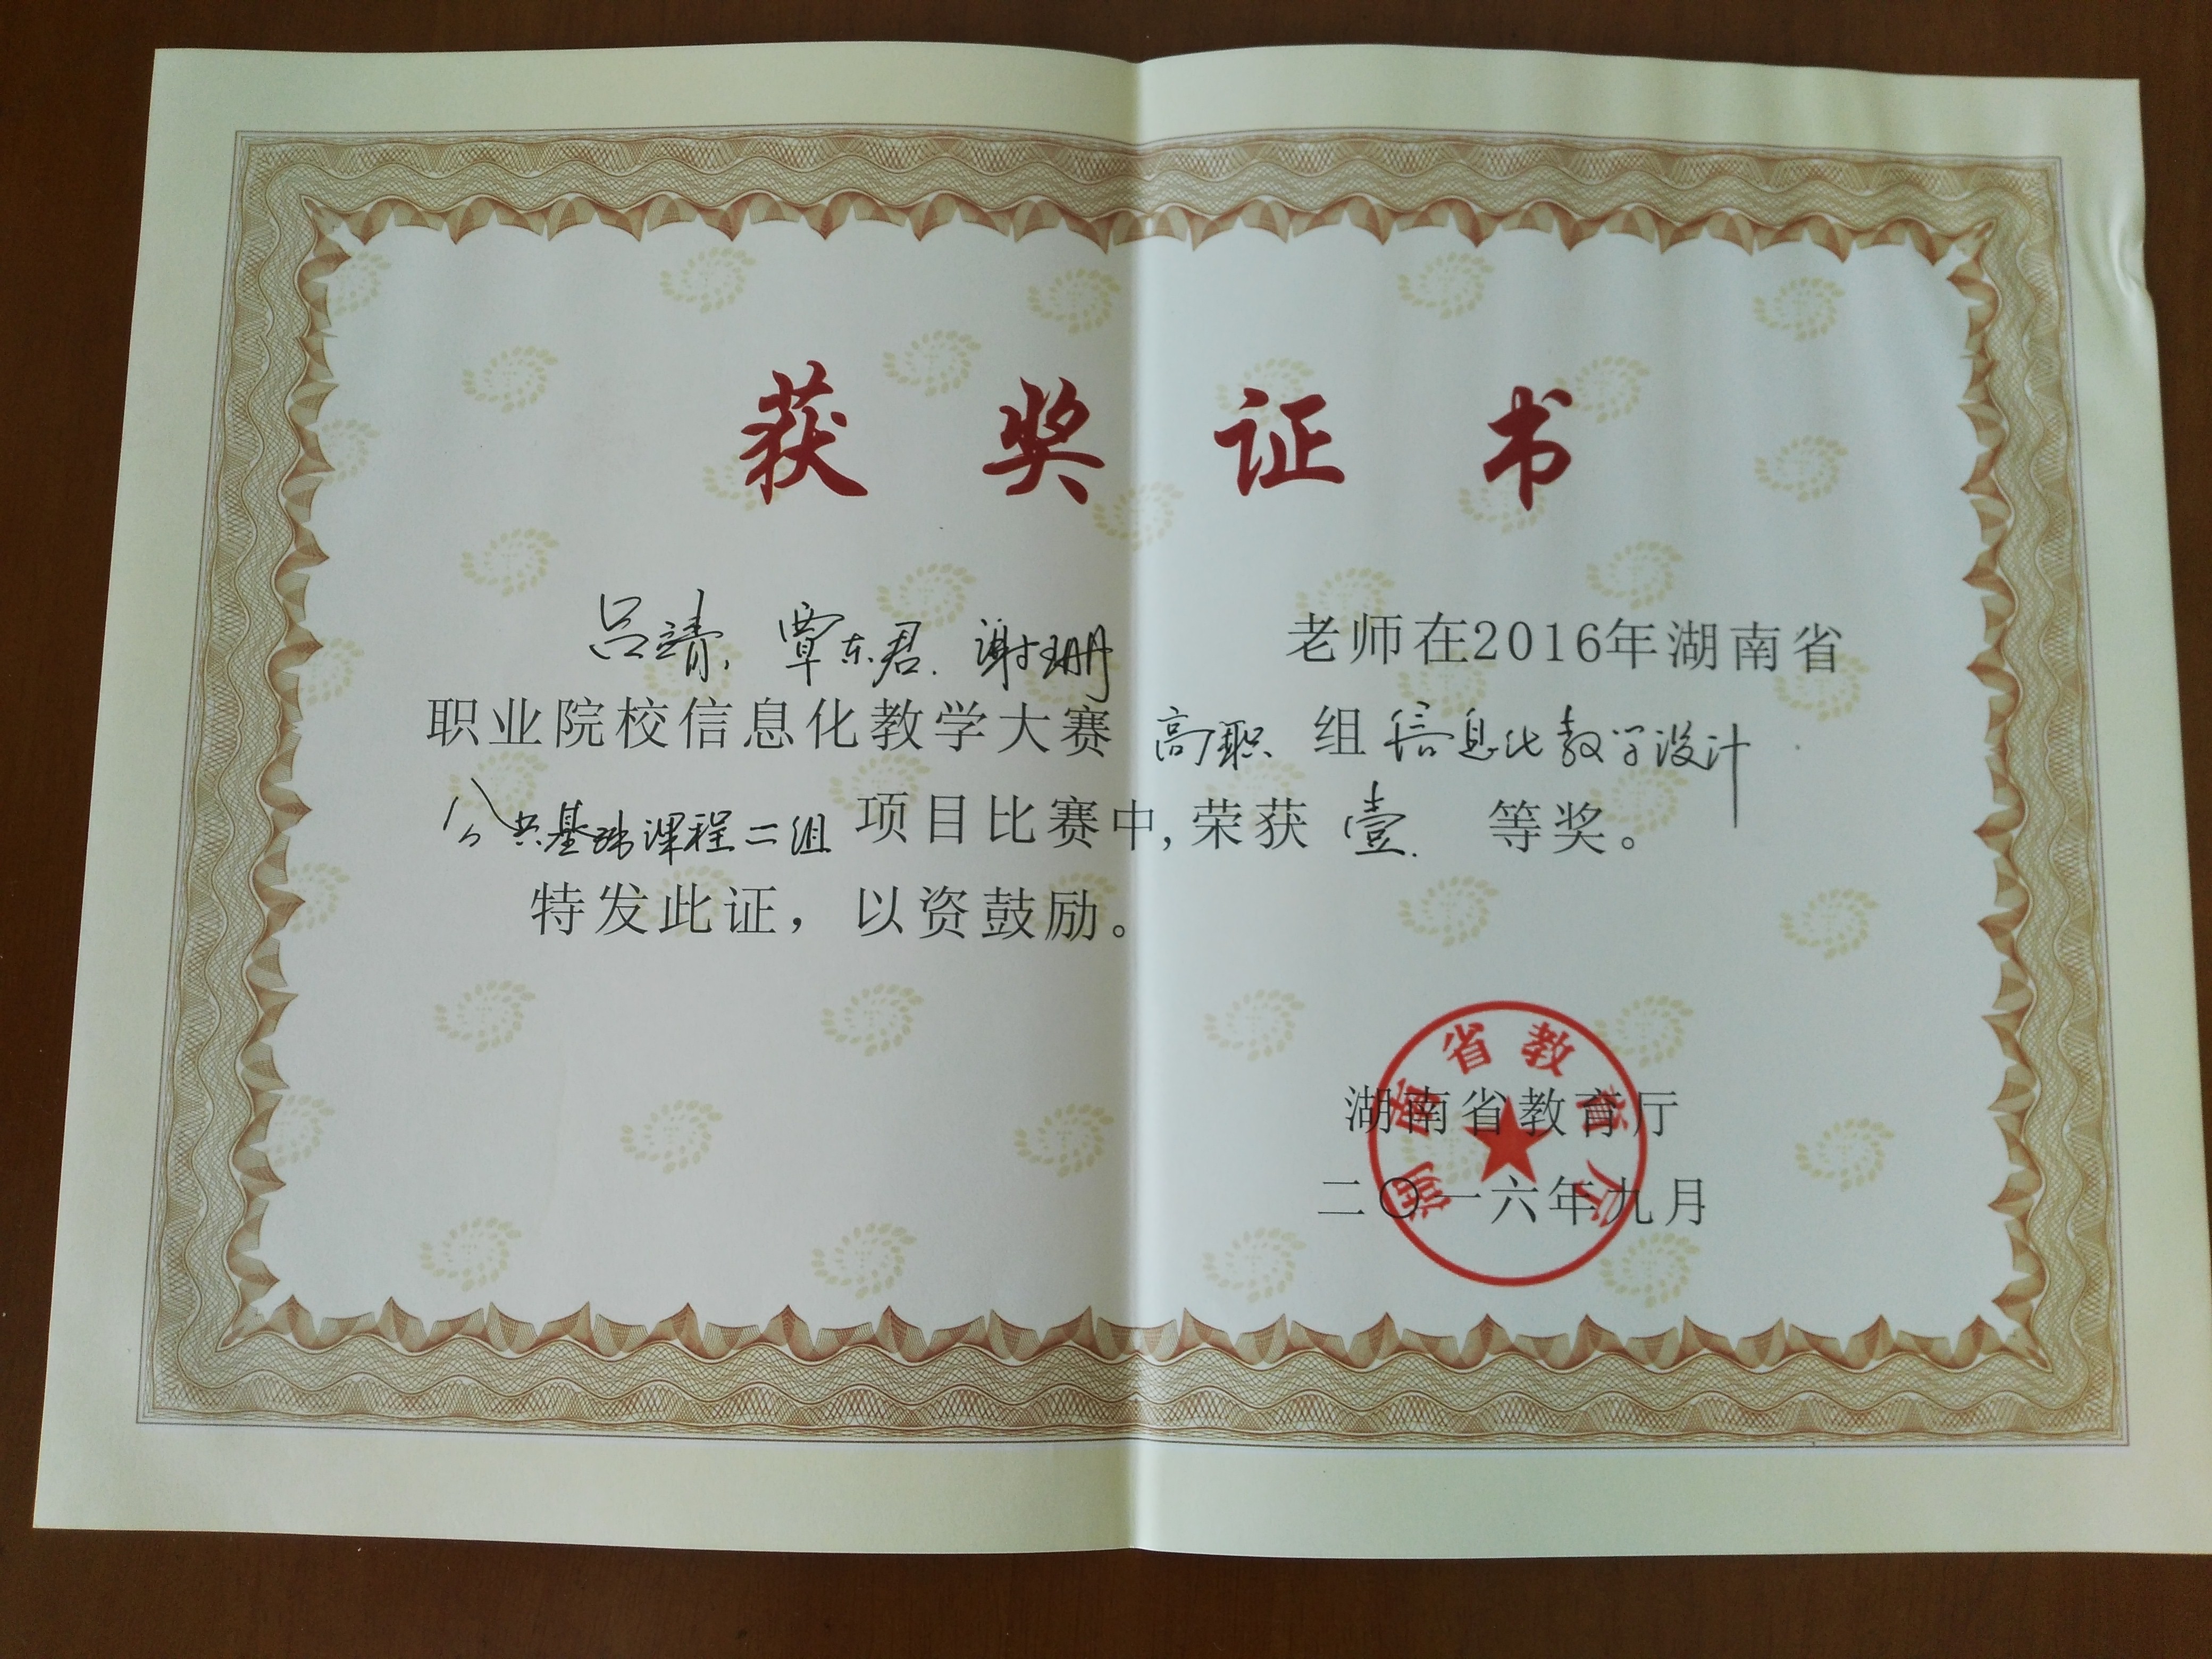 获奖证书
吕靖、覃东君、谢珊 老师在2016年湖南省
职业院校信息化教学大赛 高职 组 信息化教学设计
公共基础课程二组 项目比赛中,荣获 壹 等奖。
特发此证，以资鼓励。
湖南省教育厅
二〇一六年九月
湖南省教育厅